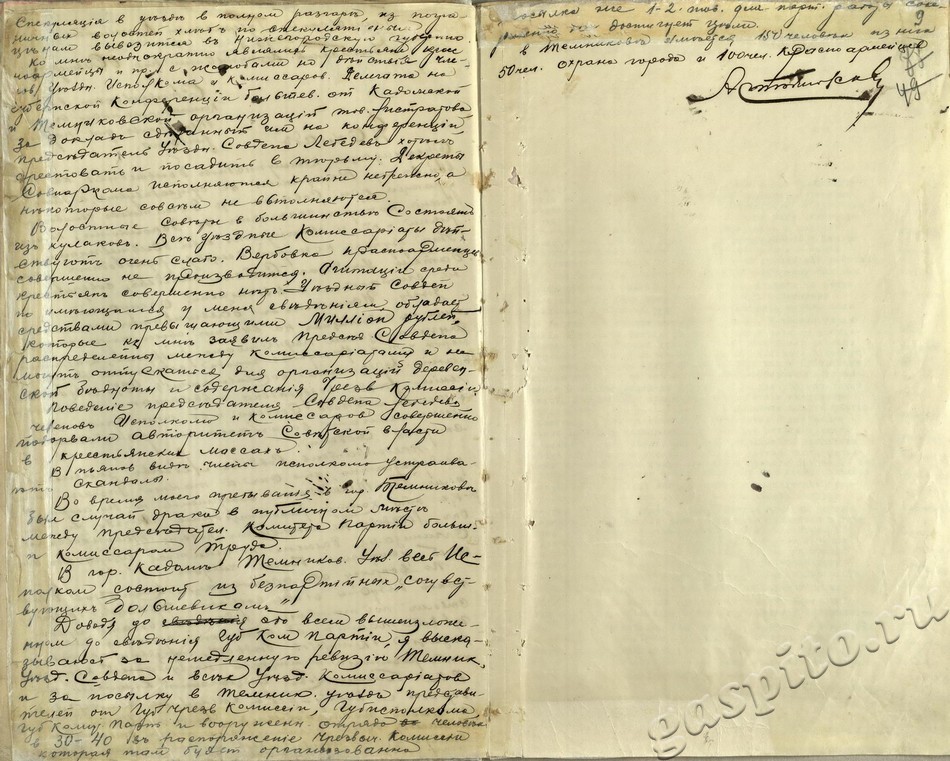 Спекуляція в уѣздѣ в полном разгарѣ из погра
ничных волостей хлѣб по спекулятивным
цѣнам вывозится в Нижегородскую губернію
Ко мнѣ неоднократно являлись крестьяне крас
ноармейцы и пр. с жалобами на дѣйствія чле-
нов Уѣздн. Исполкома и Комиссаров. Делегата на
губернской Конференціи большев. от Кадомской
и Темниковской организацій тов.
за доклад сдѣланный им на конференціи
предсѣдатель Уѣздн. Совдепа Лебедев хотѣл
арестовать и посадить в тюрьму. Декреты
Совнаркома исполняются крайне небрежно, а
нѣкоторые совсѣм не выполняются.
Волостные совѣты в большинствѣ состоят
из кулаков. Всѣ уѣздные Комиссаріаты дѣй-
ствуют очень слабо. Вербовка красноармейцев
совершенно не производится. Агитаціи среди
крестьян совершенно нѣт. Уѣздный Совдеп
по имѣющимся у меня свѣдѣніям обладает
средствами превышающими Милліон рублей,
которые как мнѣ заявил предсѣд Совдепа
распредѣлены между Комиссаріатами и не
могут отпускаться для организацій деревен-
ской бѣдноты и содержанія Чрезв Комиссіи
Поведеніе предсѣдателя Совдепа Лебедева
членов Исполкома и Комиссаров совершенно
подорвали авторитет Совѣтской власти
в крестьянских массах.
В пьяном видѣ члены исполкома устраива-
ют скандалы.
Во время моего пребыванія в гор. Темниковѣ
был случай драки в публичном мѣстѣ
между предсѣдател. Комитета Партіи больш.
и Комиссаром Труда.
В гор. Кадомѣ Темников. Уѣз весь Ис-
полком состоит из безпартійных „сочувст-
вующих Большевикам"
Доводя до свѣдѣнія обо всем вышеизложе-
нном до свѣдѣнія Губ Ком партіи, я выска-
зываюсь за немедленную ревизію Темник.
Уѣзд. Совдепа и всѣх Уѣзд. Комиссаріатов
и за посылку в Темник. уѣзд представи-
телей от Губ Чрезв Комиссіи, Губисполкома
Губ Ком. Парт и вооруженн. отряда человѣк
в 30-40 в распоряженіе Чрезвыч. Комиссіи
которая там будет организована
Посылка же 1-2. тов. для парт. работы
не достигнет цѣли.
в Темниковѣ имѣется 150 человѣк из них
50 чел. охрана города и 100 чел. Красноармейцев
9
49
gaspito.ru